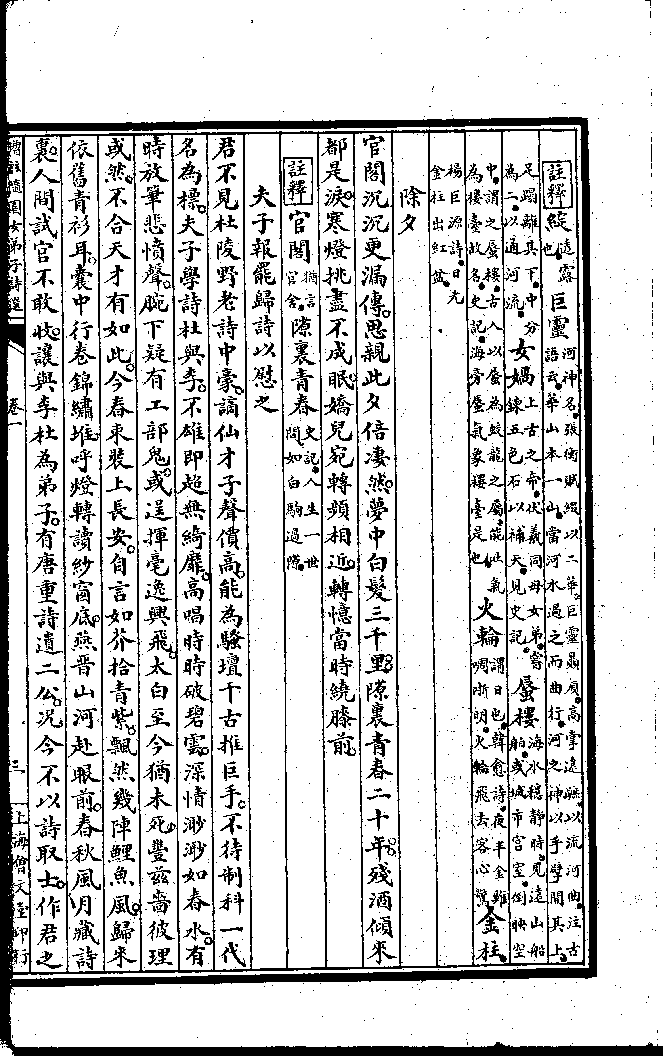 註釋 綻隨露也 巨靈河神名張衡賦綴以二華巨靈贔屓高掌遠蹠以流河曲注古語云華山本一山當河水過之而曲行河之神以手擘開其上
足蹋離其下中分為二以通河流 女媧上古之帝伏羲同母女弟嘗鍊五色石以補天見史記 蜃樓海水穩靜時見遠山船舶或城市宮室倒映空
中謂之蜃樓古人以蜃為蛟龍之屬能吐氣為樓臺故名史記海旁蜃氣象樓臺是也 火輪謂日也韓愈詩夜半金雞啁哳鳴火輪飛出客心驚 金柱
楊巨源詩日光金柱出紅盆
除夕
官閣沉沉更漏傳思親此夕倍淒然夢中白髮三千里隙裏青春二十年殘酒傾來
都是淚寒燈挑盡不成眠嬌兒宛轉頻相近轉憶當時繞膝前
註釋 官閣猶言官舍 隙裏青春史記人生一世間如白駒過隙
夫子報罷歸詩以慰之
君不見杜陵野老詩中豪謫仙才子聲價高能為騷壇千古推巨手不待制科一代
名為標夫子學詩杜與李不雄即超無綺靡高唱時時破碧雲深情渺渺如春水有
時放筆悲憤聲腕下疑有工部鬼或逞揮毫逸興飛太白至今猶未死豐茲嗇彼理
或然不合天才有如此今春束裝上長安自言如芥拾青紫飄然幾陣鯉魚風歸來
依舊青衫耳囊中行卷錦繡堆呼燈轉讀紗窗底燕晉山河赴眼前春秋風月藏詩
裏人間試官不敢收讓與李杜為弟子有唐重詩遺二公況今不以詩取士作君之
隨園女弟子詩選 卷一 三 上海會文堂印行